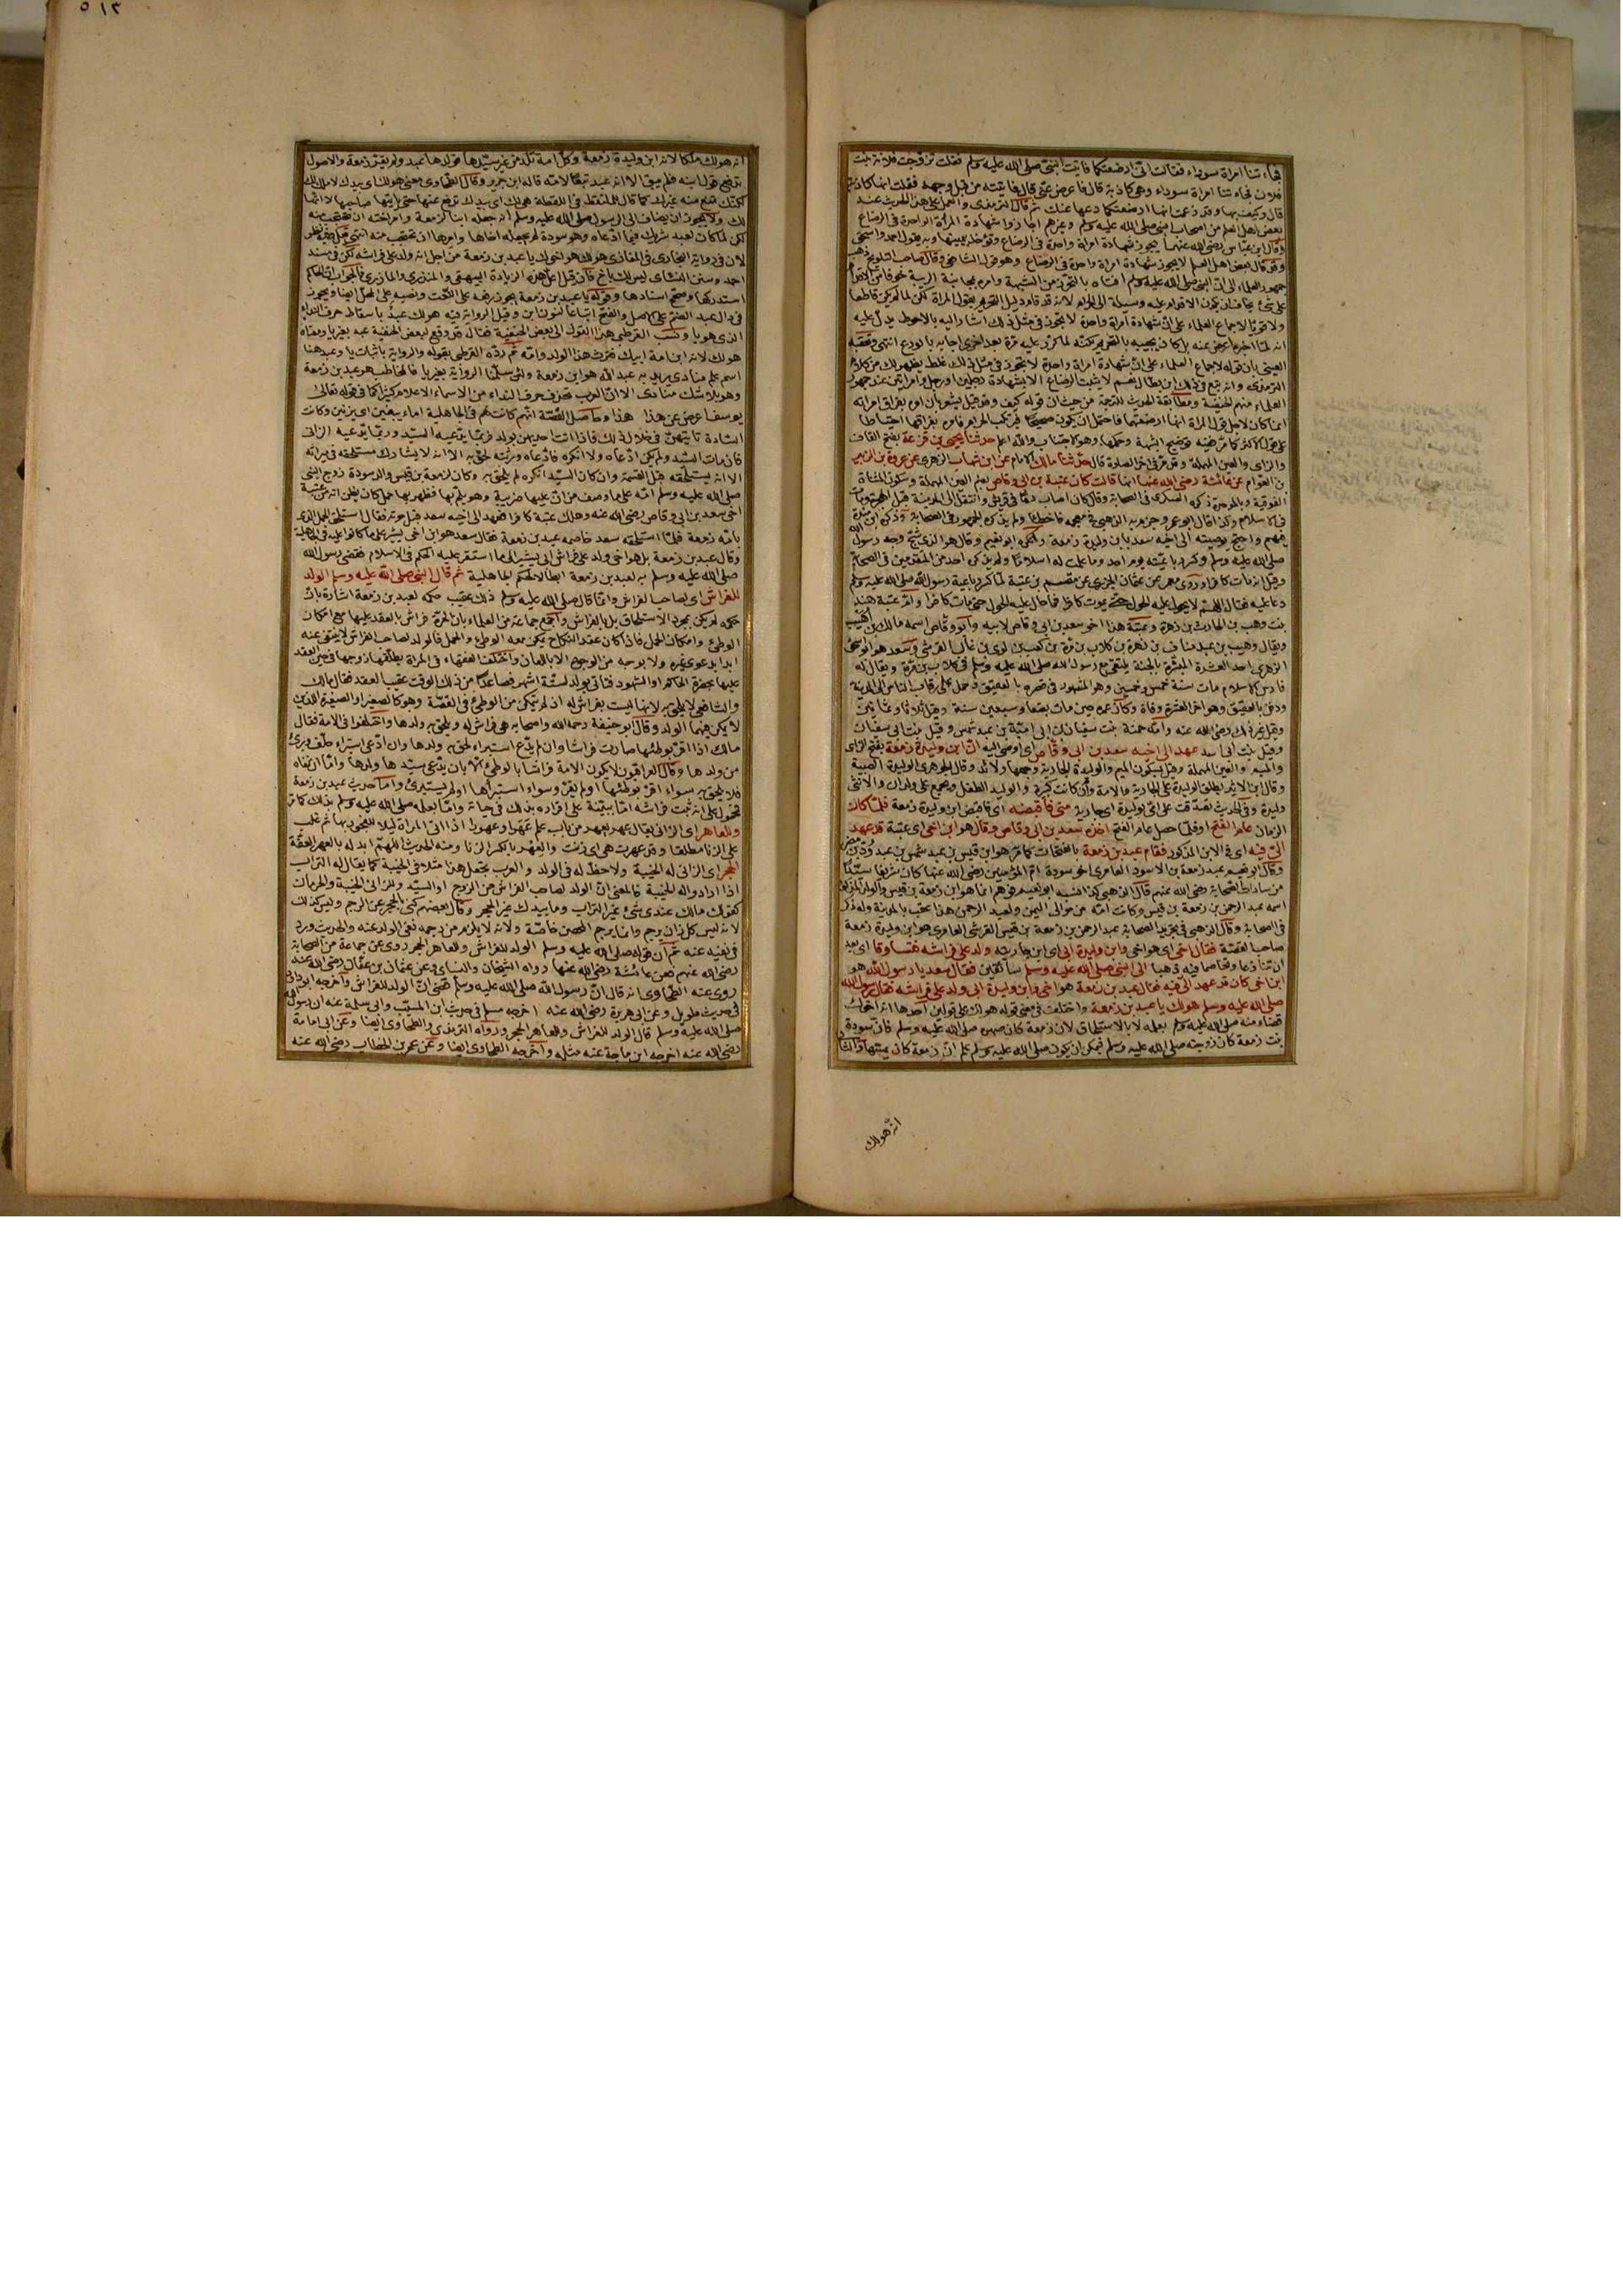 فجاءتنا امرأة سوداء فقالت انى ارضعتكما فاتيت النبى صلى الله عليه وسلم فقلت تزوجت فلانة بنت
فلان فجاءتنا امرأة سوداء وهى كاذبة قال فاعرض عنى قال فاتيته من قبل وجهه فقلت انها كاذبة
قال وكيف بها وقد زعمت انها ارضعتكما دعها عنك ثم قال الترمذى والعمل على هذا الحديث عند
بعض اهل العلم من اصحاب النبى صلى الله عليه وسلم وغيرهم اجازوا شهادة المرأة الواحدة فى الرضاع
وقال ابن عباس رضى الله عنهما يجوز شهادة امرأة واحدة فى الرضاع وتؤخذ بيمينها وبه يقول احمد واسحق
وقد قال بعض اهل العلم لا يجوز شهادة امرأة واحدة فى الرضاع وهو قول الشافعى وقال صاحب التلويح ذهب
جمهور العلماء الى ان النبى صلى الله عليه وسلم افتاه بالتحرز من الشبهة وامره بمجانبة الريبة خوفا من الاقدام
على شئ يخاف ان يكون الاقدام عليه وسيلة الى الحرام لانه قد قام دليل التحريم بقول المرأة لكن لم يكن قاطعا
ولا قويا لاجماع العلماء على ان شهادة امرأة واحدة لا تجوز فى مثل ذلك اشار اليه بالاحوط يدل عليه
انه لما اخبره اعرض عنه بل كاد يجيبه بالتحريم لكنه لما كرر عليه مرة بعد اخرى اجابه بالورع انتهى وتعقبه
العينى بان قوله لاجماع العلماء على ان شهادة امرأة واحدة لا تجوز فى مثل ذلك غلط يظهر لك من كلام
الترمذى وانه تبع فى ذلك ابن بطال نعم لا يثبت الرضاع الا بشهادة رجلين او رجل وامرأتين عند جمهور
العلماء منهم الحنفية ومطابقة الحديث للترجمة من حيث ان قوله كيف وقد قيل يشعر بان امره بفراق امرأته
انما كان لاجل قول المرأة انها ارضعتهما فاحتمل ان يكون صحيحا فيرتكب الحرام فامره بفراقها احتياطا
على قول الاكثر كما مر فيه توضيح الشبهة وحكمها وهو الاجتناب والله اعلم حدثنا يحيى بن قزعة بفتح القاف
والزاى والعين المهملة وقد مر فى آخر الصلاة قال حدثنا مالك الامام عن ابن شهاب الزهرى عن عروة بن الزبير
بن العوام عن عائشة رضى الله عنها انها قالت كان عتبة بن ابى وقاص بضم العين المهملة وسكون المثناة
الفوقية وبالموحدة ذكره العسكرى فى الصحابة وقال كان اصاب دما فى قريش وانتقل الى المدينة قبل الهجرة ومات
فى الاسلام وكذا قال ابو عمر وجزم به الذهبى فى معجمه فاخطأ ولم يذكره الجمهور فى الصحابة وذكره ابن مندة
فيهم واحتج بوصيته الى اخيه سعد بابن وليدة زمعة وانكره ابو نعيم وقال هو الذى شج وجه رسول الله
صلى الله عليه وسلم وكسر رباعيته يوم احد وما علمت له اسلاما ولم يذكره احد من المتقدمين فى الصحابة
وقيل انه مات كافرا وروى معمر عن عثمان الجزرى عن مقسم ان عتبة لما كسر رباعية رسول الله صلى الله عليه وسلم
دعا عليه فقال اللهم لا يحول عليه الحول حتى يموت كافرا فما حال عليه الحول حتى مات كافرا وام عتبة هند
بنت وهب بن الحارث بن زهرة وعتبة هذا اخو سعد بن ابى وقاص لابيه وابو وقاص اسمه مالك بن اهيب
ويقال وهيب بن عبد مناف بن زهرة بن كلاب بن مرة بن كعب بن لوى بن غالب القرشى وسعد هو ابو اسحق
الزهرى احد العشرة المبشرة بالجنة يلتقى مع رسول الله صلى الله عليه وسلم فى كلاب بن مرة ويقال له
فارس الاسلام مات سنة خمس وخمسين وهو المشهور فى قصره بالعقيق وحمل على رقاب الناس الى المدينة
ودفن بالبقيع وهو آخر العشرة وفاة وكان عمره حين مات بضعا وسبعين سنة وقيل ثلاثا وثمانين
وقيل غير ذلك رضى الله عنه وامه حمنة بنت سفيان بن امية بن عبد شمس وقيل بنت ابى سفيان
وقيل بنت ابى اسد عهد الى اخيه سعد بن ابى وقاص اى اوصى اليه ان ابن وليدة زمعة بفتح الزاى
والميم والعين المهملة وقيل بسكون الميم والوليدة الجارية وجمعها ولائد وقال الجوهرى الوليدة الصبية
وقال ابن الاثير تطلق الوليدة على الجارية والامة وان كانت كبيرة والوليد الطفل ويجمع على ولدان والانثى
وليدة وفى الحديث تصدقت على امى بوليدة اى جارية منى فاقبضه اى فاقبض ابن وليدة زمعة فلما كان
الزمان عام الفتح او فلما حصل عام الفتح اخذه سعد بن ابى وقاص وقال هو ابن اخى اى عتبة قد عهد
الى فيه اى فى الابن المذكور فقام عبد بن زمعة بالفتحات كما مر هو ابن قيس بن عبد شمس بن عبد ود بن نضر
وقال ابو نعيم عبد زمعة بن الاسود العامرى اخو سودة ام المؤمنين رضى الله عنها كان شريفا سيدا
من سادات الصحابة رضى الله عنهم قال الذهبى كذا نسبه ابو نعيم فوهم انما هو ابن زمعة بن قيس والولد المذكور
اسمه عبد الرحمن بن زمعة بن قيس وكانت امه من موالى اليمن ولعبد الرحمن هذا عقب بالمدينة وله ذكر
فى الصحابة وقال الذهبى فى تجريد الصحابة عبد الرحمن بن زمعة بن قيس القرشى العامرى هو ابن وليدة زمعة
صاحب القصة فقال اخى اى هو اخى وابن وليدة ابى اى ابن جاريته ولد على فراشه فتساوقا اى بعد
ان تنازعا وتخاصما فيه ذهبا الى النبى صلى الله عليه وسلم سائقين فقال سعد يا رسول الله هو
ابن اخى كان قد عهد الى فيه فقال عبد بن زمعة هو اخى وابن وليدة ابى ولد على فراشه فقال رسول الله
صلى الله عليه وسلم هو لك يا عبد بن زمعة واختلف فى معنى قوله هو لك على قولين احدهما انه اخوك
قضاء منه صلى الله عليه وسلم بعلمه لا بالاستلحاق لان زمعة كان صهره صلى الله عليه وسلم فان سودة
بنت زمعة كان زوجته صلى الله عليه وسلم فيمكن ان يكون صلى الله عليه وسلم علم ان زمعة كان يمسها والثانى
انه هو لك
٥١٣
انه هو لك ملكا لانه ابن وليدة زمعة وكل امة تلد من غير سيدها فولدها عبد ولم يقر زمعة والاصول
تدفع قول ابنه فلم يبق الا انه عبد تبعا لامه قاله ابن جرير وقال الطحاوى معنى هو لك اى بيدك لا ملك لك
لكنك تمنع منه غيرك كما قال للملتقط فى اللقطة هو لك اى بيدك تدفع غيرك عنها حتى يأتيها صاحبها لا انها
لك ولا يجوز ان يضاف الى الرسول صلى الله عليه وسلم انه جعله ابنا لزمعة وامر اخته ان تحتجب منه
لكن لما كان لعبد شريك فيما ادعاه وهو سودة لم يجعله اخاها وامرها ان تحتجب منه انتهى قيل فيه نظر
لان فى رواية البخارى فى المغازى هو لك هو اخوك يا عبد بن زمعة من اجل انه ولد على فراشه لكن فى مسند
احمد وسنن النسائى ليس لك باخ فان قيل اعل هذه الزيادة البيهقى والمنذرى والمازرى فالجواب ان الحاكم
استدركها وصحح اسنادها وقوله يا عبد بن زمعة يجوز رفعه على النعت ونصبه على المحل ايضا ويجوز
فى دال عبد الضم على الاصل والفتح اتباعا لنون ابن وقيل الرواية فيه هو لك عبد باسقاط حرف النداء
الذى هو يا ونسب القرطبى هذا القول الى بعض الحنفية فقال قد وقع لبعض الحنفية عبد بغير يا ومعناه
هو لك لانه ابن امة ابيك فترث هذا الولد وامه ثم رده القرطبى بقوله والرواية باثبات يا وعبد هنا
اسم علم منادى يريد به عبد الله هو ابن زمعة ولئن سلمنا الرواية بغير يا فالمخاطب هو عبد بن زمعة
وهو بلا شك منادى الا ان العرب تحذف حرف النداء من الاسماء الاعلام كثيرا كما فى قوله تعالى
يوسف اعرض عن هذا هذا وحاصل القصة انهم كانت لهم فى الجاهلية اماء يبغين اى يزنين وكانت
السادة تأتيهن فى خلال ذلك فاذا اتت احديهن بولد فربما يدعيه السيد وربما يدعيه الزانى
فان مات السيد ولم يكن ادعاه ولا انكره فادعاه ورثته لحق به الا انه لا يشارك مستلحقه فى ميراثه
الا ان يستلحقه قبل القسمة وان كان السيد انكره لم يلحق به وكان لزمعة بن قيس والد سودة زوج النبى
صلى الله عليه وسلم امة على ما وصف من ان عليها ضريبة وهو يلم بها فظهر بها حمل كان يظن انه من عتبة
اخى سعد بن ابى وقاص رضى الله عنه وهلك عتبة كافرا فعهد الى اخيه سعد قبل موته فقال استلحق الحمل الذى
بامة زمعة فلما استلحقه سعد خاصمه عبد بن زمعة فقال سعد هو ابن اخى يشير على ما كانوا عليه فى الجاهلية
وقال عبد بن زمعة بل هو اخى ولد على فراش ابى يشير الى ما استقر عليه الحكم فى الاسلام فقضى رسول الله
صلى الله عليه وسلم به لعبد بن زمعة ابطالا لحكم الجاهلية ثم قال النبى صلى الله عليه وسلم الولد
للفراش اى لصاحب الفراش وانما قال صلى الله عليه وسلم ذلك عقيب حكمه لعبد بن زمعة اشارة بان
حكمه لم يكن بمجرد الاستلحاق بل بالفراش واجمع جماعة من العلماء بان الحرة فراش بالعقد عليها مع امكان
الوطئ وامكان الحمل فاذا كان عقد النكاح يمكن معه الوطئ والحمل فالولد لصاحب الفراش لا ينتفى عنه
ابدا بدعوى غيره ولا بوجه من الوجوه الا باللعان واختلف الفقهاء فى المرأة يطلقها زوجها فى حين العقد
عليها بحضرة الحاكم او الشهود فتأتى بولد لستة اشهر فصاعدا من ذلك الوقت عقيب العقد فقال مالك
والشافعى لا يلحق به لانها ليست بفراش له اذ لم يتمكن من الوطئ فى العصمة وهو كالصغير او الصغيرة اللذين
لا يمكن منهما الولد وقال ابو حنيفة رحمه الله واصحابه هى فراش له ويلحق به ولدها واختلفوا فى الامة فقال
مالك اذا اقر بوطئها صارت فراشا وان لم يدع استبراء لحق به ولدها وان ادعى استبراء حلف وبرئ
من ولدها وقال العراقيون لا يكون الامة فراشا بالوطئ الا بان يدعى سيدها ولدها واما ان نفاه
فلا يلحق به سواء اقر بوطئها او لم يقر وسواء استبرأها او لم يستبرئ واما حديث عبد بن زمعة
فمحمول على انه ثبت فراشه اما ببينة على اقراره بذلك فى حياته واما بعلمه صلى الله عليه وسلم بذلك كما مر
وللعاهر اى الزانى يقال عهر يعهر من باب علم عهرا وعهورا اذا اتى المرأة ليلا للفجور بها ثم غلب
على الزنا مطلقا وقد عهرت هى اى زنت والعهر بالكسر الزنا ومنه الحديث اللهم ابدله بالعهر العفة
الحجر اى الزانى له الخيبة ولا حظ له فى الولد والعرب تجعل هذا مثلا فى الخيبة كما يقال له التراب
اذا ارادوا له الخيبة فالمعنى ان الولد لصاحب الفراش من الزوج او السيد وللزانى الخيبة والحرمان
كقولك مالك عندى شئ غير التراب وما بيدك غير الحجر وقال بعضهم كنى بالحجر عن الرجم وليس كذلك
لانه ليس كل زان يرجم وانما يرجم المحصن خاصة ولانه لا يلزم من رجمه نفى الولد عنه والحديث ورد
فى نفيه عنه ثم ان قوله صلى الله عليه وسلم الولد للفراش وللعاهر الحجر روى عن جماعة من الصحابة
رضى الله عنهم فعن عائشة رضى الله عنها رواه الشيخان والنسائى وعن عثمان بن عفان رضى الله عنه
روى عنه الطحاوى انه قال ان رسول الله صلى الله عليه وسلم قضى ان الولد للفراش واخرجه ابو داود
فى حديث طويل وعن ابى هريرة رضى الله عنه اخرجه مسلم فى حديث ابن المسيب وابى سلمة عنه ان رسول الله
صلى الله عليه وسلم قال الولد للفراش وللعاهر الحجر ورواه الترمذى والطحاوى ايضا وعن ابى امامة
رضى الله عنه اخرجه ابن ماجة عنه مثله واخرجه الطحاوى ايضا وعن عمر بن الخطاب رضى الله عنه